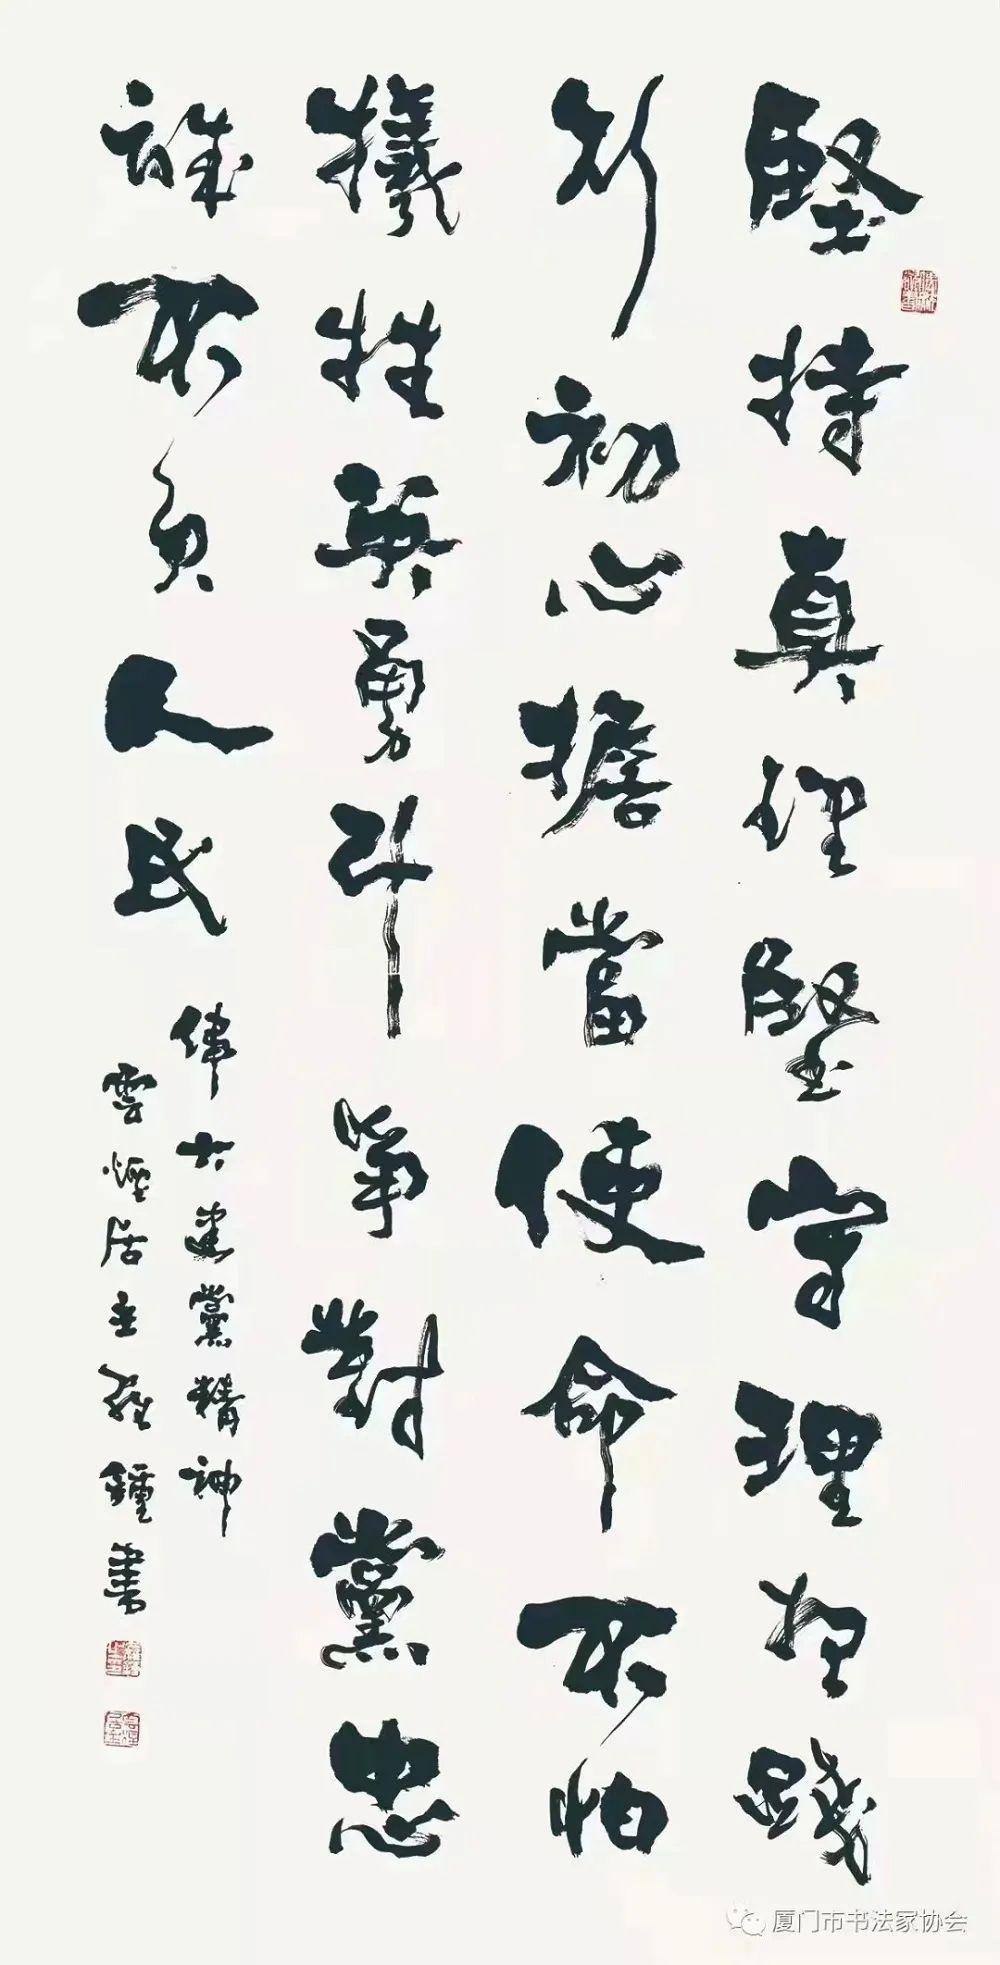 堅持真理堅守理想踐
行初心擔當使命不怕
犧牲英勇斗爭對黨忠
誠不負人民
偉大建黨精神
雲煙居主鐘書
厦门市书法家协会